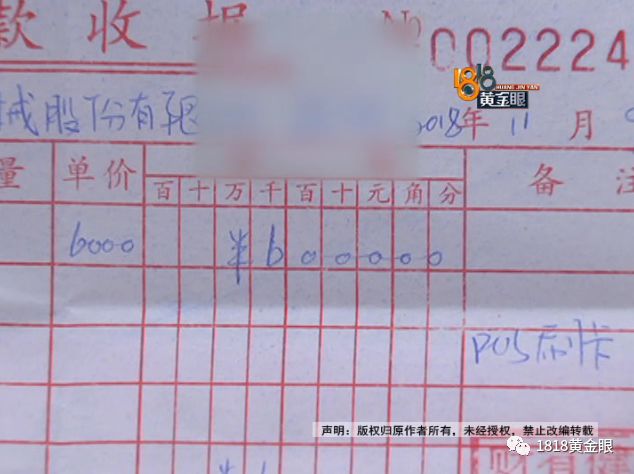 款收据 № 002224
1818
HUANG JIN YAN
黄金眼
械股份有限 2018年11月9
量 单价 百 十 万 千 百 十 元 角 分 备注
6000 ¥600000
POS刷卡
声明：版权归原作者所有，未经授权，禁止改编转载
1818黄金眼